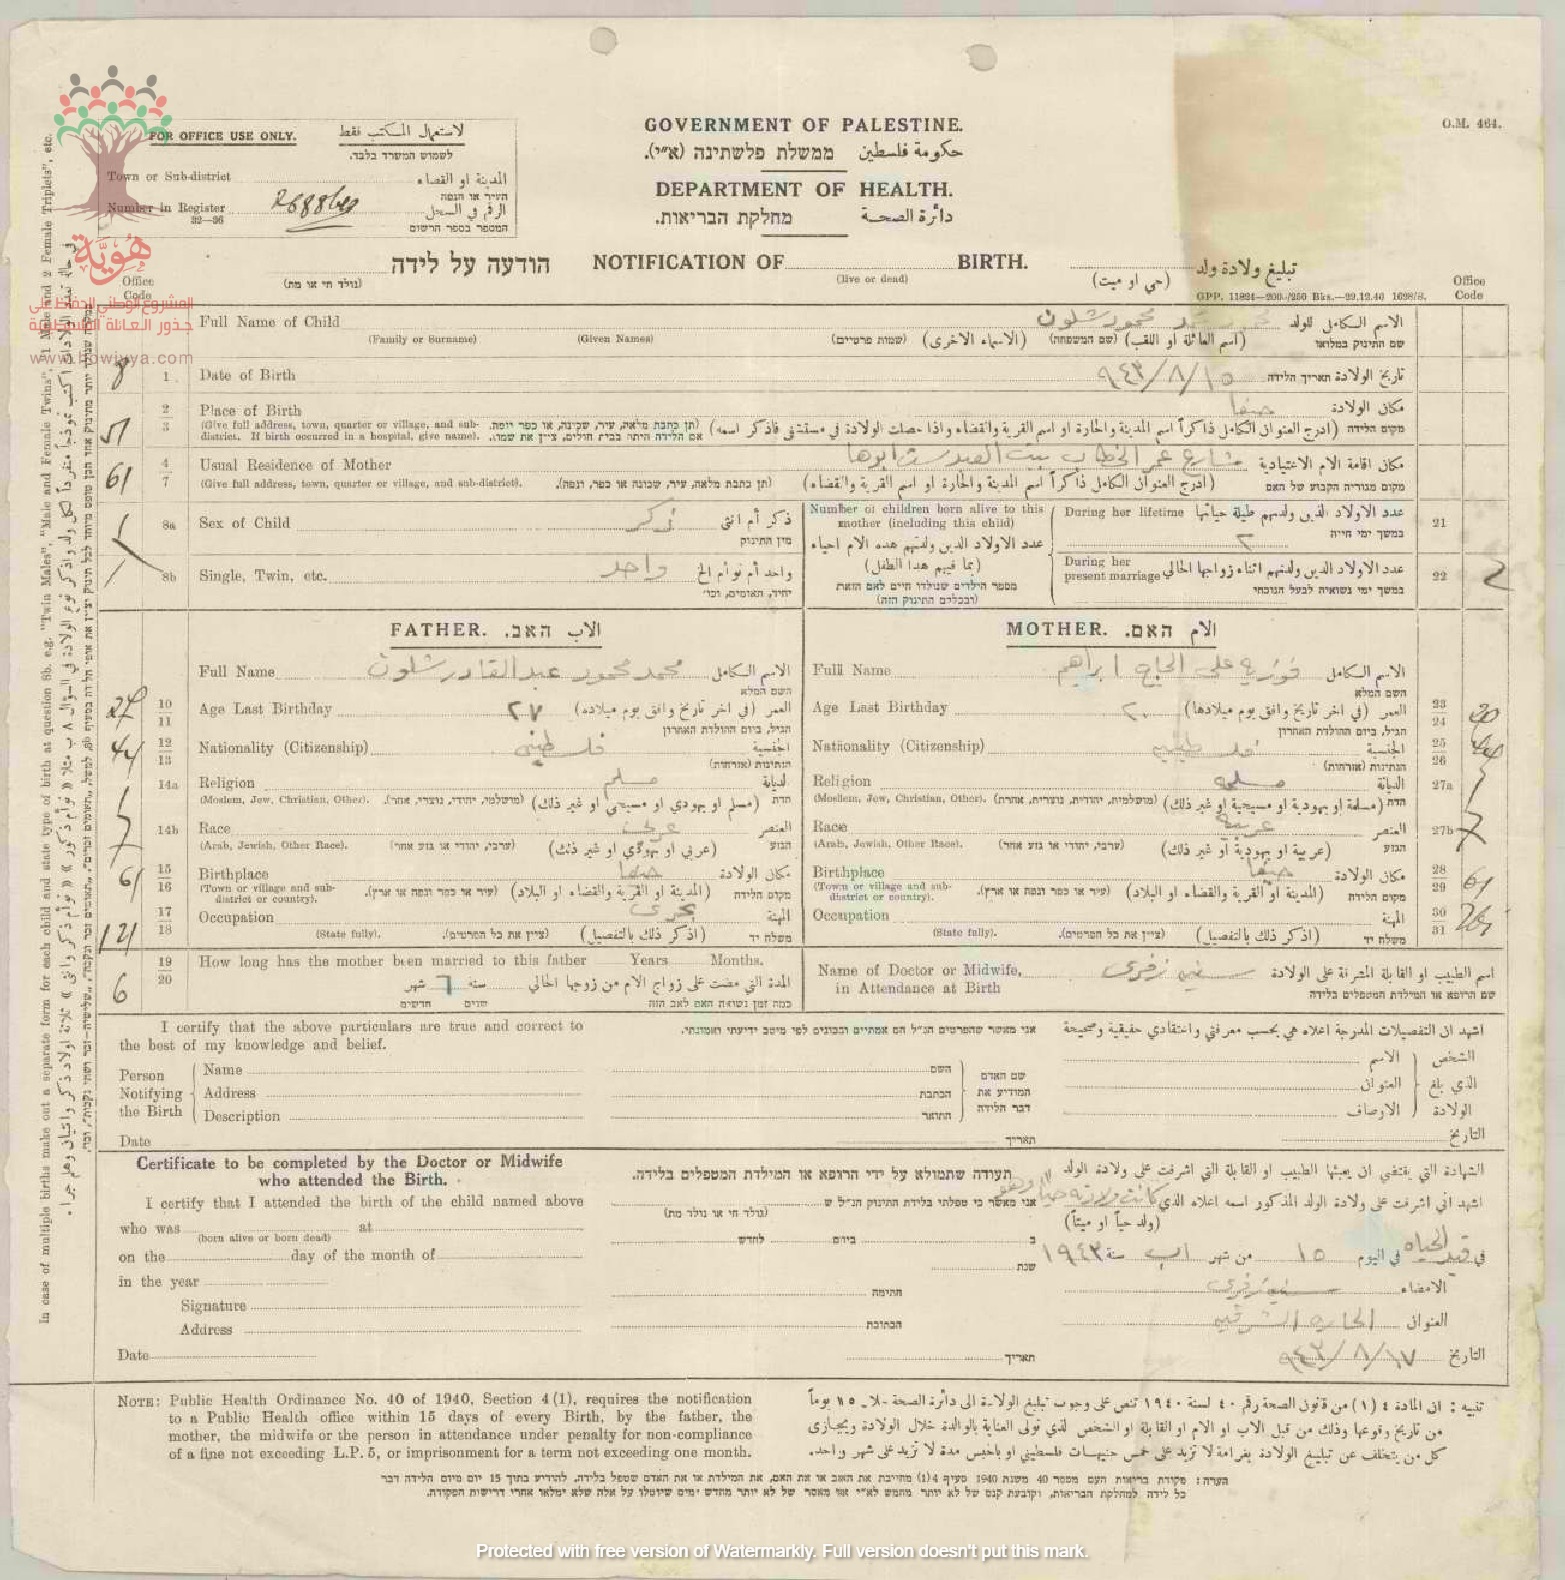 O.M. 464.
FOR OFFICE USE ONLY. لاستعمال المكتب فقط
לשמוש המשרד בלבד.
Town or Sub-district المدينة او القضاء
העיר או הנפה
Number in Register الرقم في السجل
32—36 המספר בספר הרשום
GOVERNMENT OF PALESTINE.
حكومة فلسطين ממשלת פלשתינה (א״י).
DEPARTMENT OF HEALTH.
دائرة الصحة מחלקת הבריאות.
הודעה על לידה NOTIFICATION OF BIRTH. تبليغ ولادة ولد
(נולד חי או מת) (live or dead) (حي او ميت)
GPP. 11824—200/250 Bks.—29.12.40 1628/S.
Office Code Office Code
هُوِيَّة
المشروع الوطني للحفاظ على
جذور العائلة الفلسطينية
www.howiyya.com
Full Name of Child محمود شلون الاسم الكامل للولد
(Family or Surname) (Given Names) (שמות פרטיים) (الاسماء الاخرى) (שם המשפחה) (اسم العائلة او اللقب) שם התינוק במלואו
8 1 Date of Birth ٩٤٣/٨/١٥ تاريخ الولادة תאריך הלידה
51 2 3 Place of Birth حيفا مكان الولادة
(Give full address, town, quarter or village, and sub-district. If birth occurred in a hospital, give name). (תן כתבת מלאה, עיר, שכונה, או כפר ונפה. אם הלידה היתה בבית חולים, ציין את שמו). (ادرج العنوان الكامل ذاكراً اسم المدينة والحارة او اسم القرية والقضاء واذا حصلت الولادة في مستشفى فاذكر اسمه) מקום הלידה
61 4 7 Usual Residence of Mother شارع عمر الخطاب بيت مكان اقامة الام الاعتيادية
(Give full address, town, quarter or village, and sub-district). (תן כתבת מלאה, עיר, שכונה או כפר, ונפה). (ادرج العنوان الكامل ذاكراً اسم المدينة والحارة او اسم القرية والقضاء) מקום מגוריה הקבוע של האם
8a Sex of Child ذكر ذكر أم انثى
מין התינוק
8b Single, Twin, etc. واحد واحد أم توأم الخ
יחיד, תאומים, וכו׳
Number of children born alive to this mother (including this child)
عدد الاولاد الذين ولدتهم هذه الام احياء
(بما فيهم هذا الطفل)
מספר הילדים שנולדו חיים לאם הזאת
(ובכללם התינוק הזה)
During her lifetime عدد الاولاد الذين ولدتهم طيلة حياتها 21
٢ במשך ימי חייה
During her present marriage عدد الاولاد الذين ولدتهم اثناء زواجها الحالي 22 2
במשך ימי נשואיה לבעל הנוכחי
FATHER. האב. الاب
Full Name محمد محمود عبد القادر شلون الاسم الكامل
השם המלא
27 10 11 Age Last Birthday ٢٧ العمر (في اخر تاريخ وافق يوم ميلاده)
הגיל, ביום ההולדת האחרון
44 12 13 Nationality (Citizenship) فلسطيني الجنسية
הנתינות (אזרחות)
14a Religion مسلم الديانة
(Moslem, Jew, Christian, Other). (מושלמי, יהודי, נוצרי, אחר). (مسلم او يهودي او مسيحي او غير ذلك) הדת
14b Race عربي العنصر
(Arab, Jewish, Other Race). (ערבי, יהודי או גזע אחר) (عربي او يهودي او غير ذلك) הגזע
61 15 16 Birthplace حيفا مكان الولادة
(Town or village and sub-district or country). (עיר או כפר ונפה או ארץ). (المدينة او القرية والقضاء او البلاد) מקום הלידה
121 17 18 Occupation بحري المهنة
(State fully). (ציין את כל הפרטים). (اذكر ذلك بالتفصيل) משלח יד
MOTHER. האם. الام
Full Name فوزية علي الحاج ابراهيم الاسم الكامل
השם המלא
Age Last Birthday ٢٠ العمر (في اخر تاريخ وافق يوم ميلادها) 23 24 20
הגיל, ביום ההולדת האחרון
Nationality (Citizenship) فلسطينيه الجنسية 25 26 44
הנתינות (אזרחות)
Religion مسلمه الديانة 27a
(Moslem, Jew, Christian, Other). (מושלמית, יהודית, נוצרית, אחרת) (مسلمة او يهودية او مسيحية او غير ذلك) הדת
Race عربية العنصر 27b
(Arab, Jewish, Other Race). (ערבי, יהודי או גזע אחר) (عربية او يهودية او غير ذلك) הגזע
Birthplace حيفا مكان الولادة 28 29 61
(Town or village and sub-district or country). (עיר או כפר ונפה או ארץ). (المدينة او القرية والقضاء او البلاد) מקום הלידה
Occupation المهنة 30 31
(State fully). (ציין את כל הפרטים). (اذكر ذلك بالتفصيل) משלח יד
6 19 20 How long has the mother been married to this father Years Months.
المدة التي مضت على زواج الام من زوجها الحالي سنه ٦ شهر
כמה זמן נשואה האם לאב הזה שנים חדשים
Name of Doctor or Midwife, in Attendance at Birth اسم الطبيب او القابلة المشرفة على الولادة
שם הרופא או המילדת המטפלים בלידה
I certify that the above particulars are true and correct to the best of my knowledge and belief.
אני מאשר שהפרטים הנ״ל הם אמתיים ונכונים לפי מיטב ידיעתי ואמונתי.
اشهد ان التفصيلات المدرجة اعلاه هي بحسب معرفتي واعتقادي حقيقية وصحيحة
Person Notifying the Birth
Name השם الاسم
Address הכתבת العنوان
Description התואר الاوصاف
שם האדם המודיע את דבר הלידה
الشخص الذي بلغ الولادة
Date תאריך التاريخ
Certificate to be completed by the Doctor or Midwife who attended the Birth.
תעודה שתמולא על ידי הרופא או המילדת המטפלים בלידה.
الشهادة التي يقتضي ان يعبئها الطبيب او القابلة التي اشرفت على ولادة الولد
I certify that I attended the birth of the child named above
who was at
(born alive or born dead)
on the day of the month of
in the year
Signature
Address
Date
אני מאשר כי טפלתי בלידת התינוק הנ״ל ש
(נולד חי או נולד מת)
ב ביום לחדש
שנת
חתימה
הכתובת
תאריך
اشهد اني اشرفت على ولادة الولد المذكور اسمه اعلاه الذي كانت ولادته حياً وهو
(ولد حياً او ميتاً)
في قيد الحياه في اليوم ١٥ من شهر اب سنة ١٩٤٣
الامضاء
العنوان الحاره الشرقيه
التاريخ ٩٤٣/٨/١٧
NOTE: Public Health Ordinance No. 40 of 1940, Section 4 (1), requires the notification
to a Public Health office within 15 days of every Birth, by the father, the
mother, the midwife or the person in attendance under penalty for non-compliance
of a fine not exceeding L.P. 5, or imprisonment for a term not exceeding one month.
تنبيه : ان المادة ٤ (١) من قانون الصحة رقم ٤٠ لسنة ١٩٤٠ تنص على وجوب تبليغ الولادة الى دائرة الصحة خلال ١٥ يوماً
من تاريخ وقوعها وذلك من قبل الاب او الام او القابلة او الشخص الذي تولى العناية بالوالدة خلال الولادة ويجازى
كل من يتخلف عن تبليغ الولادة بغرامة لا تزيد على خمس جنيهات فلسطيني او بالحبس مدة لا تزيد على شهر واحد.
הערה : פקודת בריאות העם מספר 40 משנת 1940 סעיף 4(1) מחייבת את האב או את האם, את המילדת או את האדם שטפל בלידה, להודיע בתוך 15 יום מיום הלידה דבר
כל לידה למחלקת הבריאות, וקובעת קנס של לא יותר מחמש לא״י או מאסר של לא יותר מחדש ימים שיוטלו על אלה שלא ימלאו אחרי דרישות הפקודה.
In case of multiple births make out a separate form for each child and state type of birth at question 8b. e.g. "Twin Males", "Male and Female Twins", "1 Male and 2 Female Triplets", etc.
Protected with free version of Watermarkly. Full version doesn't put this mark.